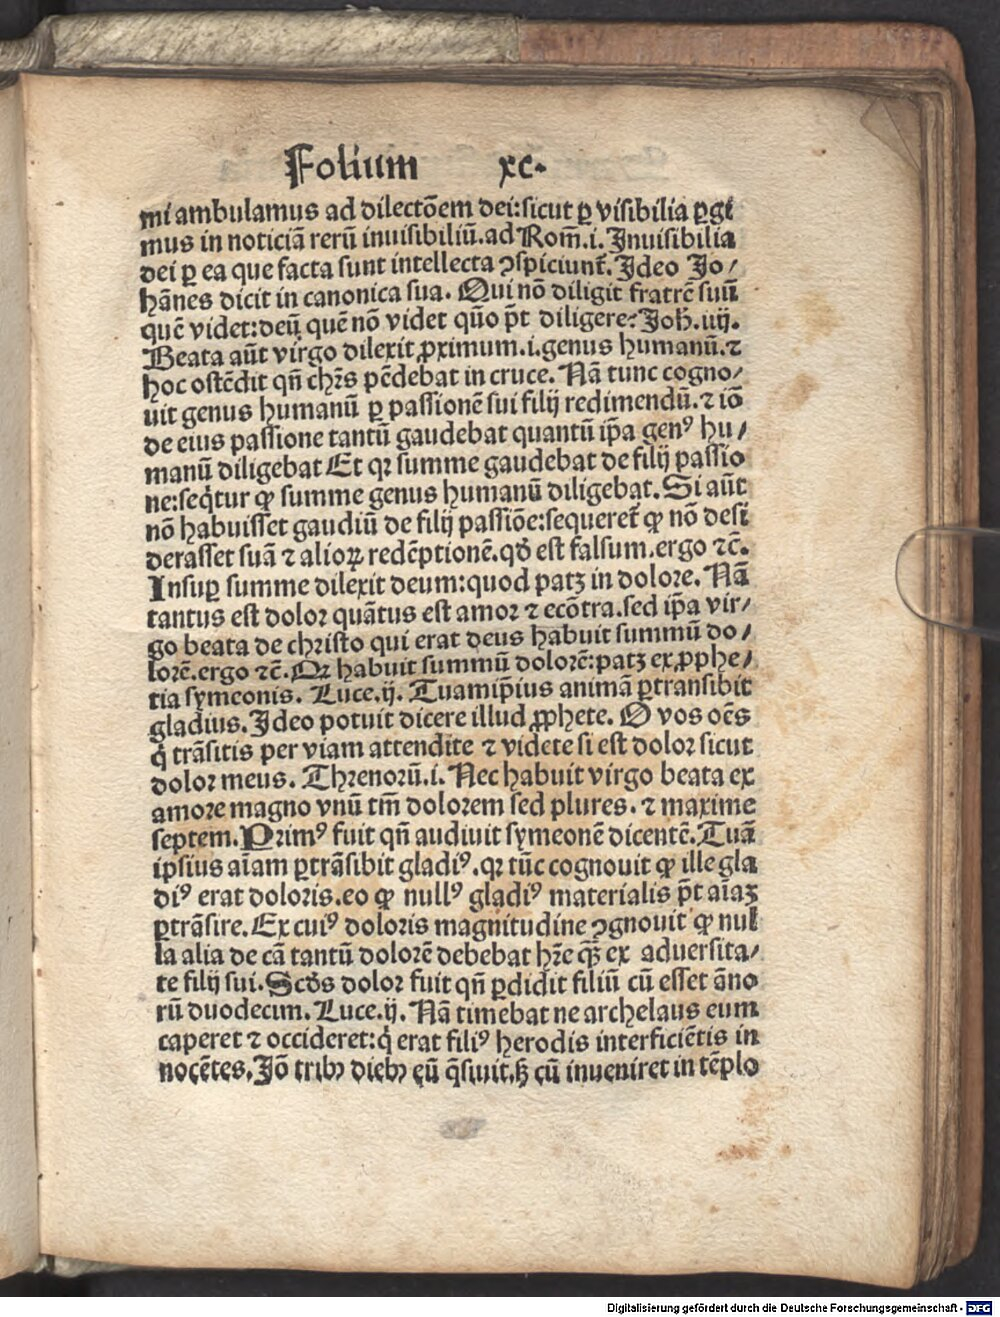 Folium xc.
mi ambulamus ad dilectõem dei:sicut ꝑ visibilia ꝑgi
mus in noticiã rerũ inuisibiliũ.ad Rom̃.i. Inuisibilia
dei ꝑ ea que facta sunt intellecta ꝯspiciunt̃. Ideo Jo/
hãnes dicit in canonica sua. Qui nõ diligit fratrẽ suũ
quẽ videt:deũ quẽ nõ videt qũo p̃t diligere? Joh̃. iiij.
Beata aũt virgo dilexit ꝓximum.i.genus humanũ.⁊
hoc ostẽdit qñ chr̃s pẽdebat in cruce. Nã tunc cogno/
uit genus humanũ ꝑ passionẽ sui filij redimendũ.⁊ iõ
de eius passione tantũ gaudebat quantũ ip̃a genꝰ hu/
manũ diligebat Et qꝛ summe gaudebat de filij passio
ne:seq̃tur ꝙ summe genus humanũ diligebat. Si aũt
nõ habuisset gaudiũ de filij passiõe:sequeret̃ ꝙ nõ desi
derasset suã ⁊ alioꝝ redẽptionẽ.qd̃ est falsum.ergo ⁊c̃.
Insuꝑ summe dilexit deum:quod patꝫ in dolore. Nã
tantus est dolor quãtus est amor ⁊ ecõtra.sed ip̃a vir/
go beata de christo qui erat deus habuit summũ do/
lorẽ.ergo ⁊c̃. Qꝛ habuit summũ dolorẽ:patꝫ ex ꝓphe/
tia symeonis. Luce.ij. Tuam ip̃ius animã ꝑtransibit
gladius. Ideo potuit dicere illud ꝓphete. O vos oẽs
q̃ trãsitis per viam attendite ⁊ videte si est dolor sicut
dolor meus. Threnorũ.i. Nec habuit virgo beata ex
amore magno vnũ tm̃ dolorem sed plures. ⁊ maxime
septem. Primꝰ fuit qñ audiuit symeonẽ dicentẽ. Tuã
ipsius aĩam ꝑtrãsibit gladiꝰ. qꝛ tũc cognouit ꝙ ille gla
diꝰ erat doloris.eo ꝙ nullꝰ gladiꝰ materialis p̃t aĩaꝫ
ꝑtrãsire. Ex cuiꝰ doloris magnitudine ꝯgnouit ꝙ nul
la alia de cã tantũ dolorẽ debebat hr̃e q̃ꝫ ex aduersita/
te filij sui. Scd̃s dolor fuit qñ ꝑdidit filiũ cũ esset ãno
rũ duodecim. Luce.ij. Nã timebat ne archelaus eum
caperet ⁊ occideret:q̃ erat filiꝰ herodis interficiẽtis in
nocẽtes. Jõ tribꝫ diebꝫ eũ q̃siuit.ꝫ cũ inueniret in tẽplo
Digitalisierung gefördert durch die Deutsche Forschungsgemeinschaft - DFG